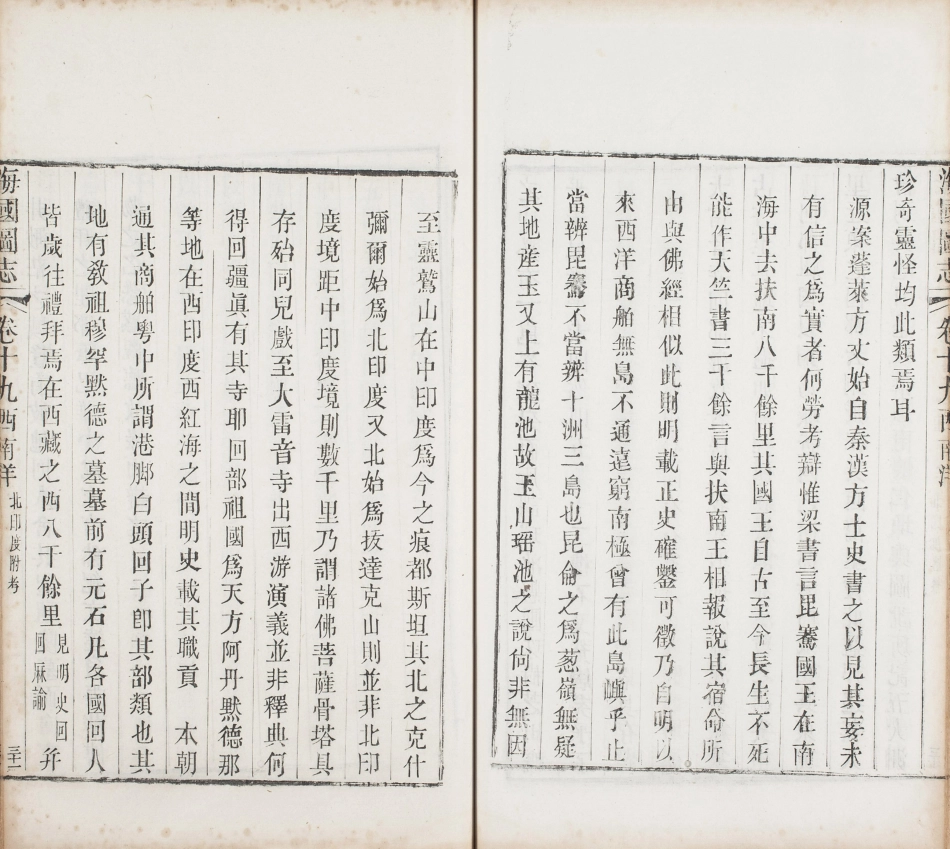 珍奇靈怪均此類焉耳
源案蓬萊方丈始自秦漢方士史書之以見其妄未
有信之爲實者何勞考辯惟梁書言毘騫國王在南
海中去扶南八千餘里其國王自古至今長生不死
能作天竺書三千餘言與扶南王相報說其宿命所
由與佛經相似此則明載正史確鑿可徵乃自明以
來西洋商舶無島不通遠窮南極曾有此島嶼乎止
當辨毘騫不當辨十洲三島也昆侖之爲葱嶺無疑
其地産玉又上有龍池故玉山瑶池之說尙非無因
至靈鷲山在中印度爲今之痕都斯坦其北之克什
彌爾始爲北印度又北始爲抜達克山則並非北印
度境距中印度境則數千里乃謂諸佛菩薩骨塔具
存殆同兒戲至大雷音寺出西游演義並非釋典何
得回疆眞有其寺耶回部祖國爲天方阿丹黙德那
等地在西印度西紅海之間明史載其職貢　本朝
通其商舶粤中所謂港脚白頭回子卽其部類也其
地有敎祖穆罕黙德之墓墓前有元石凡各國回人
皆歲往禮拜焉在西藏之西八千餘里見明史回回厤論幷
海國圖志　卷十九西南洋　北印度附考